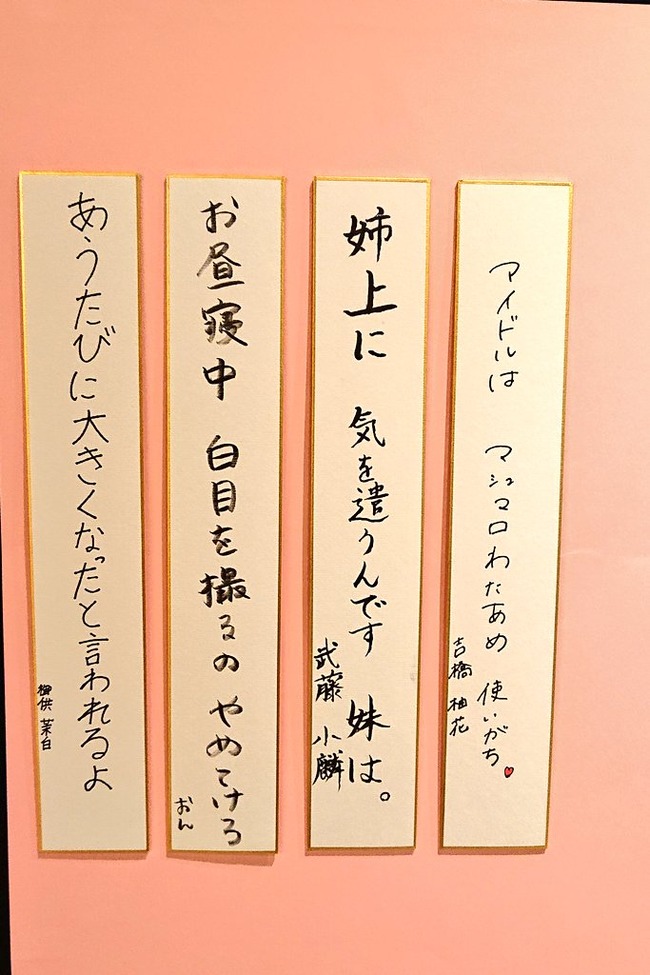 アイドルは マシュマロわたあめ 使いがち♥
吉橋 柚花
姉上に 気を遣うんです 妹は。
武藤 小麟
お昼寝中 白目を撮るの やめてけろ
おん
あうたびに大きくなったと言われるよ
御供 茉白